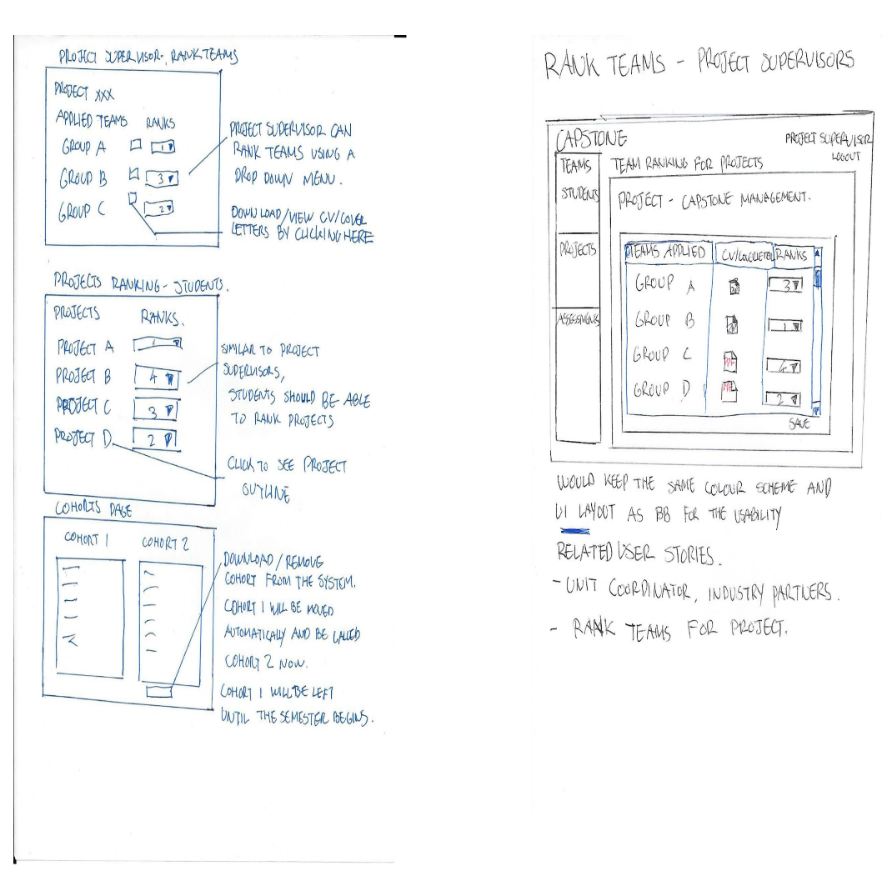 PROJECT SUPERVISOR - RANK TEAMS
PROJECT XXX
APPLIED TEAMS RANKS
GROUP A 1
GROUP B 3
GROUP C 2
PROJECT SUPERVISOR CAN
RANK TEAMS USING A
DROP DOWN MENU.
DOWNLOAD/VIEW CV/COVER
LETTERS BY CLICKING HERE
PROJECTS RANKING - STUDENTS.
PROJECTS RANKS.
PROJECT A 1
PROJECT B 4
PROJECT C 3
PROJECT D 2
SIMILAR TO PROJECT
SUPERVISORS,
STUDENTS SHOULD BE ABLE
TO RANK PROJECTS
CLICK TO SEE PROJECT
OUTLINE
COHORTS PAGE
COHORT 1 COHORT 2
DOWNLOAD / REMOVE
COHORT FROM THE SYSTEM.
COHORT 1 WILL BE MOVED
AUTOMATICALLY AND BE CALLED
COHORT 2 NOW.
COHORT 1 WILL BE LEFT
UNTIL THE SEMESTER BEGINS.
RANK TEAMS - PROJECT SUPERVISORS
CAPSTONE PROJECT SUPERVISOR
LOGOUT
TEAMS
STUDENTS
PROJECTS
TEAM RANKING FOR PROJECTS
PROJECT - CAPSTONE MANAGEMENT.
TEAMS APPLIED RANKS
GROUP A 3
GROUP B 1
GROUP C 4
GROUP D 2
SAVE
WOULD KEEP THE SAME COLOUR SCHEME AND
UI LAYOUT AS BB FOR THE USABILITY
RELATED USER STORIES.
- UNIT COORDINATOR, INDUSTRY PARTNERS.
- RANK TEAMS FOR PROJECT.